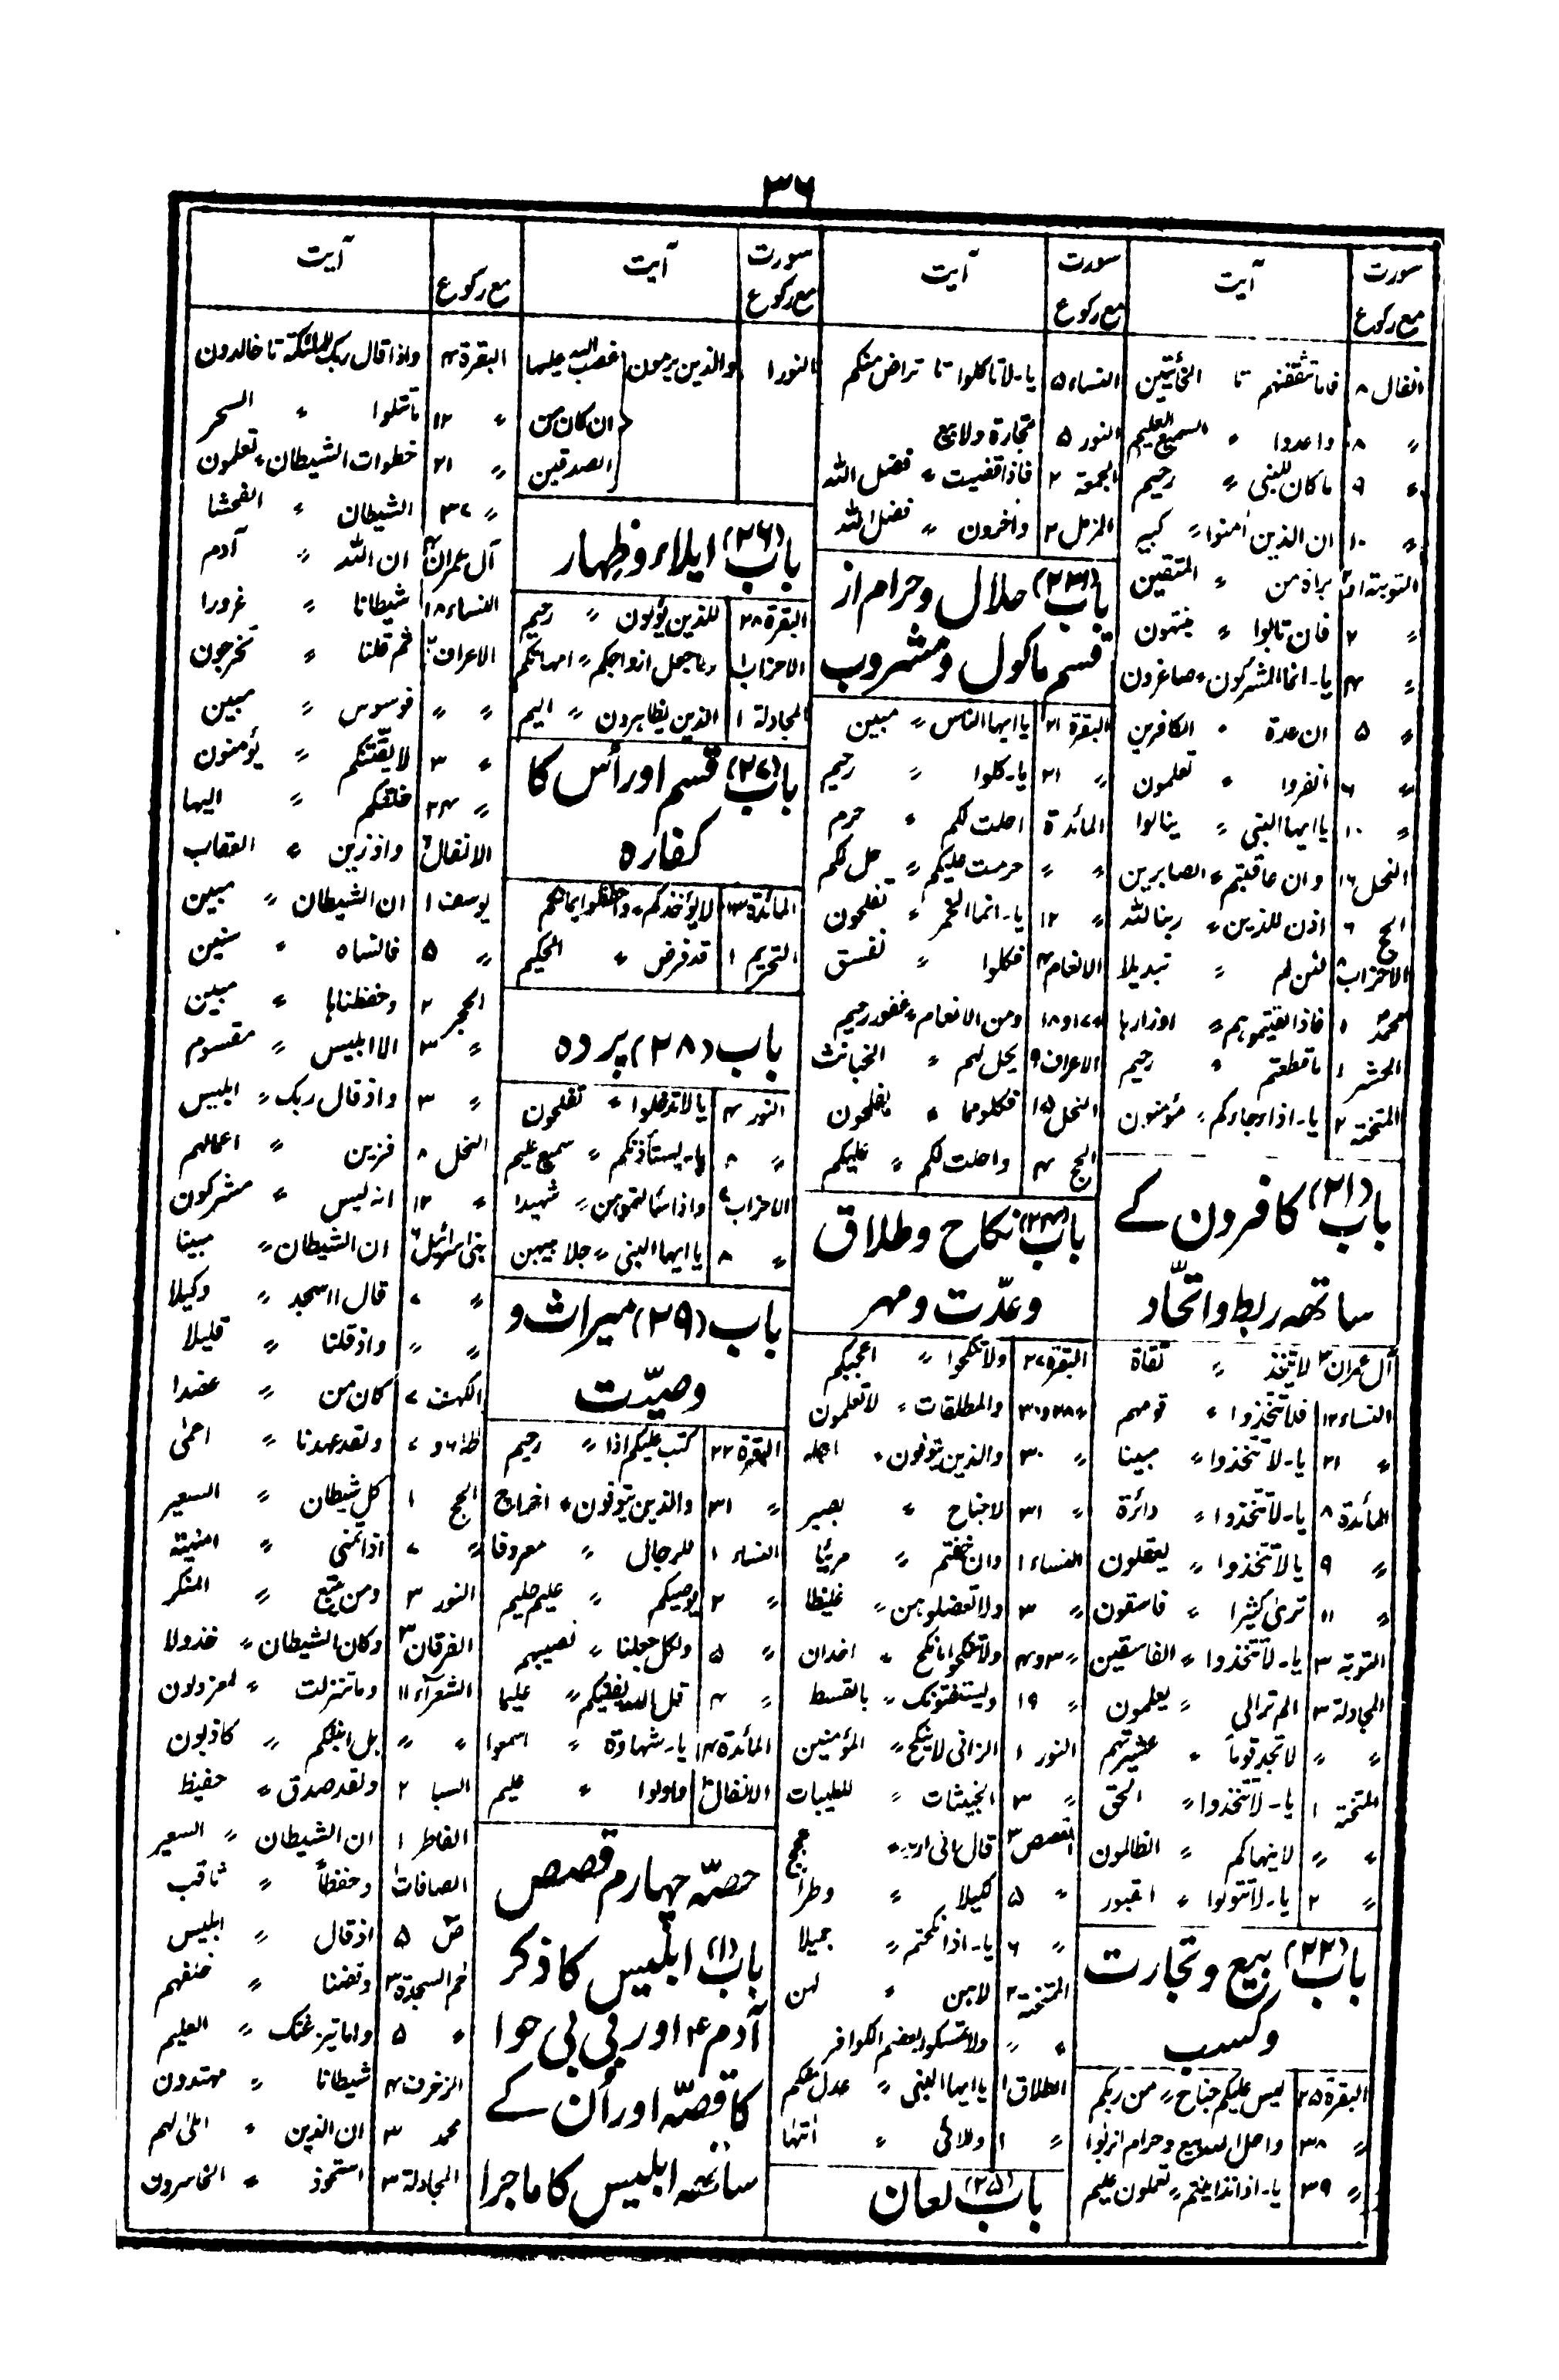 ۳۶
سورت مع رکوع آیت
انفال ۸ فاما تثقفنهم تا الخائنین
〃 ۸ واعدوا 〃 السمیع العلیم
〃 ۹ ماکان للنبی 〃 رحیم
〃 ۱۰ ان الذین آمنوا 〃 کبیر
التوبتہ براۃ من 〃 المتقین
〃 ۲ فان تابوا 〃 ینتہون
〃 ۴ یا۔انما المشرکون 〃 صاغرون
〃 ۵ ان عدۃ 〃 الکافرین
〃 ۶ انفروا 〃 تعلمون
〃 ۱۰ یا ایہا النبی 〃 ینالوا
النحل ۱۶ وان عاقبتم 〃 الصابرین
الحج ۶ اذن للذین 〃 ربنا للہ
الاحزاب لئن لم 〃 تبدیلا
محمد ۱ فاذا لقیتموہم 〃 اوزارہا
الحشر ۱ ما قطعتم 〃 رحیم
الممتحنۃ ۲ یا۔اذا جاءکم 〃 مؤمنون
باب (۲۱) کافروں کے
ساتھ ربط و اتحّاد
آل عمران ۳ لا یتخذ 〃 تقاۃ
النساء ۱۲ فلا تتخذوا 〃 قومہم
〃 ۲۱ یا۔لا تتخذوا 〃 مبینا
المائدۃ ۸ یا۔لا تتخذوا 〃 دائرۃ
〃 ۹ یا لا تتخذوا 〃 یعقلون
〃 ۱۱ تریٰ کثیرا 〃 فاسقون
التوبۃ ۳ یا۔لا تتخذوا 〃 الفاسقین
المجادلۃ ۳ الم تر الی 〃 یعلمون
〃 〃 لا تجد قوماً 〃 عشیرتہم
الممتحنۃ ۱ یا۔لا تتخذوا 〃 الحق
〃 〃 لا ینہاکم 〃 الظالمون
〃 ۲ یا۔لا تتولوا 〃 القبور
باب (۲۲) بیع و تجارت
و کسب
البقرۃ ۲۵ لیس علیکم جناح 〃 من ربکم
〃 ۳۸ واحل اللہ البیع وحرام الربوا
〃 ۳۹ یا۔اذا تداینتم 〃 تعملون علیم
سورت مع رکوع آیت
النساء ۵ یا۔لا تاکلوا تا تراض منکم
النور ۵ تجارۃ ولا بیع
الجمعۃ ۲ فاذا قضیت 〃 فضل اللہ
المزمل ۲ وآخرون 〃 فضل اللہ
باب (۲۳) حلال و حرام از
قسم ماکول و مشروب
البقرۃ ۲۱ یا ایہا الناس 〃 مبین
〃 ۲۱ یا۔کلوا 〃 رحیم
المائدۃ احلت لکم 〃 حرم
〃 〃 حرمت علیکم 〃 حل لکم
〃 ۱۲ یا۔انما الخمر 〃 تفلحون
الانعام ۱۴ فکلوا 〃 لفسق
〃 ۱۷و۱۸ ومن الانعام 〃 غفور رحیم
الاعراف ۹ یحل لہم 〃 الخبائث
النحل ۱۵ فکلو مما 〃 یفلحون
الحج ۴ واحلت لکم 〃 علیکم
باب (۲۴) نکاح و طلاق
و عدّت و مہر
البقرۃ ۲۷ ولا تنکحوا 〃 اعجبکم
〃 ۲۸و۳۰ والمطلقات 〃 لا تعلمون
〃 ۳۰ والذین یتوفون 〃 اجلہ
〃 ۳۱ لا جناح 〃 بصیر
النساء ۱ وان خفتم 〃 مریئا
〃 ۳ ولا تعضلوہن 〃 غلیظا
〃 ۳و۴ ولا تنکحوا ما نکح 〃 اخدان
〃 ۱۹ ویستفتونک 〃 بالقسط
النور ۱ الزانی لا ینکح 〃 المؤمنین
〃 ۳ الخبیثات 〃 للطیبات
القصص ۳ قال انی ارید 〃 حجج
〃 ۵ لکیلا 〃 وطراً
〃 ۶ یا۔اذا نکحتم 〃 جمیلا
الممتحنۃ ۲ لا ہن 〃 لہن
〃 〃 ولا تمسکوا بعصم الکوافر
الطلاق ۱ یا ایہا النبی 〃 عدل منکم
〃 ۱ واللائی 〃 اٰتٰہا
باب (۲۵) لعان
سورت مع رکوع آیت
النور ۱ والذین یرمون غضب اللہ علیہا
ان کان من
الصدقین
باب (۲۶) ایلاء و ظِہار
البقرۃ ۲۸ للذین یؤلون 〃 رحیم
الاحزاب ۱ وما جعل ازواجکم 〃 امہاتکم
المجادلۃ ۱ الذین یظاہرون 〃 الیم
باب (۲۷) قسم اور اُس کا
کفارہ
المائدۃ ۱۲ لا یؤاخذکم 〃 واحفظوا ایمانکم
التحریم ۱ قد فرض 〃 الحکیم
باب (۲۸) پردہ
النور ۴ یا لا تدخلوا 〃 تفلحون
〃 ۸ یا۔لیستأذنکم 〃 سمیع علیم
الاحزاب ۷ واذا سألتموہن 〃 شہیدا
〃 ۸ یا ایہا النبی 〃 جلابیبہن
باب (۲۹) میراث و
وصیّت
البقرۃ ۲۲ کتب علیکم اذا 〃 رحیم
〃 ۳۱ والذین یتوفون 〃 اخراج
النساء ۱ للرجال 〃 معروفا
〃 ۲ یوصیکم 〃 علیم حلیم
〃 ۵ ولکل جعلنا 〃 نصیبہم
〃 ۴ قل اللہ یفتیکم 〃 علیما
المائدۃ ۱۴ یا۔شہادۃ 〃 اسمعوا
الانفال واولوا 〃 علیم
حصّہ چہارم قصص
باب (۱) ابلیس کا ذکر
آدم ؑ اور بی بی حوا
کا قصّہ اور اُن کے
ساتھ ابلیس کا ماجرا
مع رکوع آیت
البقرۃ ۴ واذ اقال ربک للملٰئکۃ تا خالدون
〃 ۱۲ ما تتلوا 〃 السحر
〃 ۲۱ خطوات الشیطان 〃 تعلمون
〃 ۳۷ الشیطان 〃 الفحشا
آل عمران ان اللہ 〃 آدم
النساء ۱۸ شیطانا 〃 غرورا
الاعراف ثم قلنا 〃 تخرجون
〃 〃 فوسوس 〃 مبین
〃 ۳ لا یفتننکم 〃 یؤمنون
〃 ۲۴ خلقکم 〃 الیہا
الانفال واذ زین 〃 العقاب
یوسف ۱ ان الشیطان 〃 مبین
〃 ۵ فانساہ 〃 سنین
الحجر ۲ وحفظناہا 〃 مبین
〃 ۳ الا ابلیس 〃 مقسوم
〃 ۳ واذ قال ربک 〃 ابلیس
النحل ۸ فزین 〃 اعمالہم
〃 ۱۲ انہ لیس 〃 مشرکون
بنی اسرائیل ان الشیطان 〃 مبینا
〃 ۷ قال ااسجد 〃 وکیلا
〃 〃 واذ قلنا 〃 قلیلا
الکہف ۷ کان من 〃 عضدا
طٰہٰ ۶و۷ ولقد عہدنا 〃 اعمیٰ
الحج ۱ کل شیطان 〃 السعیر
〃 ۷ اذا تمنی 〃 امنیتہ
النور ۳ ومن یتبع 〃 المنکر
الفرقان ۳ وکان الشیطان 〃 خذولا
الشعرآء ۱۱ وما تنزلت 〃 لمعزولون
〃 〃 بل انبئکم 〃 کاذبون
السبا ۲ ولقد صدق 〃 حفیظ
الفاطر ۱ ان الشیطان 〃 السعیر
الصافات ۱ وحفظاً 〃 ثاقب
صٓ ۵ اذ قال 〃 ابلیس
حم السجدۃ ۳ وقیضنا 〃 خلفہم
〃 ۵ واما ینزغنک 〃 العلیم
الزخرف ۴ شیطانا 〃 مہتدون
محمد ۳ ان الذین 〃 املیٰ لہم
المجادلۃ ۳ استحوذ 〃 الخاسرون